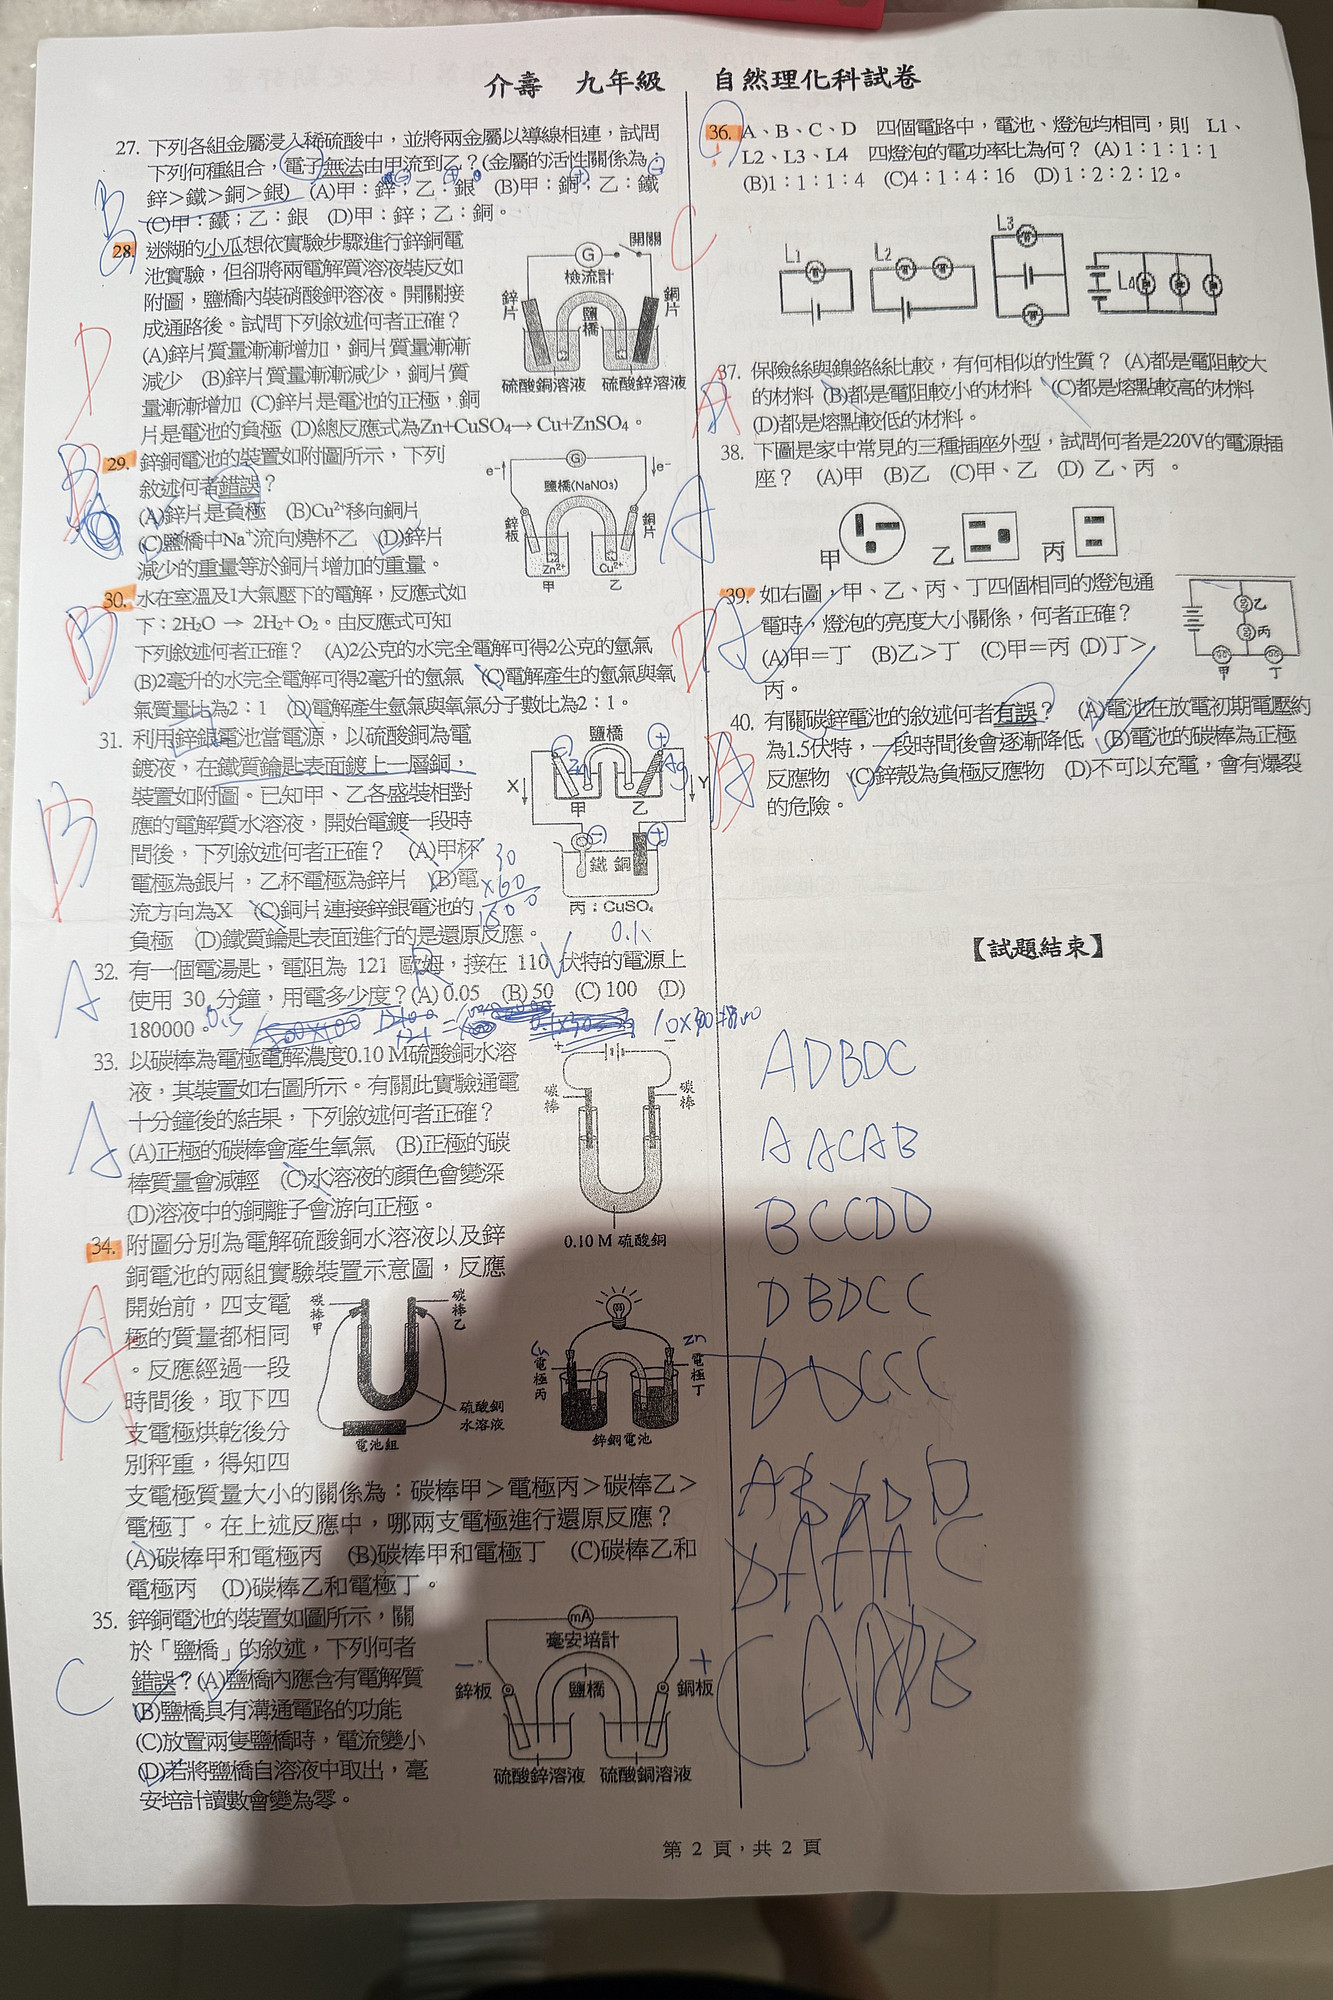 介壽　九年級　自然理化科試卷
27. 下列各組金屬浸入稀硫酸中，並將兩金屬以導線相連，試問
下列何種組合，電子無法由甲流到乙？(金屬的活性關係為：
鋅＞鐵＞銅＞銀) (A)甲：鋅；乙：銀 (B)甲：銅；乙：鐵
(C)甲：鐵；乙：銀 (D)甲：鋅；乙：銅。
B
28. 迷糊的小瓜想依實驗步驟進行鋅銅電
池實驗，但卻將兩電解質溶液裝反如
附圖，鹽橋內裝硝酸鉀溶液。開關接
成通路後。試問下列敘述何者正確？
(A)鋅片質量漸漸增加，銅片質量漸漸
減少 (B)鋅片質量漸漸減少，銅片質
量漸漸增加 (C)鋅片是電池的正極，銅
片是電池的負極 (D)總反應式為Zn+CuSO₄→ Cu+ZnSO₄。
D
開關
G
檢流計
鋅片
銅片
鹽橋
硫酸銅溶液 硫酸鋅溶液
29. 鋅銅電池的裝置如附圖所示，下列
敘述何者錯誤？
(A)鋅片是負極 (B)Cu²⁺移向銅片
(C)鹽橋中Na⁺流向燒杯乙 (D)鋅片
減少的重量等於銅片增加的重量。
G
e⁻
e⁻
鹽橋(NaNO₃)
鋅板
銅片
Zn²⁺
Cu²⁺
甲
乙
30. 水在室溫及1大氣壓下的電解，反應式如
下：2H₂O → 2H₂+ O₂。由反應式可知
下列敘述何者正確？ (A)2公克的水完全電解可得2公克的氫氣
(B)2毫升的水完全電解可得2毫升的氫氣 (C)電解產生的氫氣與氧
氣質量比為2：1 (D)電解產生氫氣與氧氣分子數比為2：1。
31. 利用鋅銀電池當電源，以硫酸銅為電
鍍液，在鐵質鑰匙表面鍍上一層銅，
裝置如附圖。已知甲、乙各盛裝相對
應的電解質水溶液，開始電鍍一段時
間後，下列敘述何者正確？ (A)甲杯
電極為銀片，乙杯電極為鋅片 (B)電
流方向為X (C)銅片連接鋅銀電池的
負極 (D)鐵質鑰匙表面進行的是還原反應。
鹽橋
Zn
Ag
X
Y
甲
乙
鐵 銅
丙：CuSO₄
30
×60
1800
32. 有一個電湯匙，電阻為 121 歐姆，接在 110 伏特的電源上
使用 30 分鐘，用電多少度？(A) 0.05 (B) 50 (C) 100 (D)
180000。
A
33. 以碳棒為電極電解濃度0.10 M硫酸銅水溶
液，其裝置如右圖所示。有關此實驗通電
十分鐘後的結果，下列敘述何者正確？
(A)正極的碳棒會產生氧氣 (B)正極的碳
棒質量會減輕 (C)水溶液的顏色會變深
(D)溶液中的銅離子會游向正極。
A
碳棒
碳棒
0.10 M 硫酸銅
34. 附圖分別為電解硫酸銅水溶液以及鋅
銅電池的兩組實驗裝置示意圖，反應
開始前，四支電
極的質量都相同
。反應經過一段
時間後，取下四
支電極烘乾後分
別秤重，得知四
支電極質量大小的關係為：碳棒甲＞電極丙＞碳棒乙＞
電極丁。在上述反應中，哪兩支電極進行還原反應？
(A)碳棒甲和電極丙 (B)碳棒甲和電極丁 (C)碳棒乙和
電極丙 (D)碳棒乙和電極丁。
A
C
碳棒甲
碳棒乙
硫酸銅水溶液
電池組
Cu
Zn
電極丙
電極丁
鋅銅電池
35. 鋅銅電池的裝置如圖所示，關
於「鹽橋」的敘述，下列何者
錯誤？(A)鹽橋內應含有電解質
(B)鹽橋具有溝通電路的功能
(C)放置兩隻鹽橋時，電流變小
(D)若將鹽橋自溶液中取出，毫
安培計讀數會變為零。
C
mA
毫安培計
鋅板
鹽橋
銅板
硫酸鋅溶液 硫酸銅溶液
36. A、B、C、D 四個電路中，電池、燈泡均相同，則 L1、
L2、L3、L4 四燈泡的電功率比為何？ (A) 1：1：1：1
(B)1：1：1：4 (C)4：1：4：16 (D) 1：2：2：12。
C
L1
L2
L3
L4
37. 保險絲與鎳鉻絲比較，有何相似的性質？ (A)都是電阻較大
的材料 (B)都是電阻較小的材料 (C)都是熔點較高的材料
(D)都是熔點較低的材料。
A
38. 下圖是家中常見的三種插座外型，試問何者是220V的電源插
座？ (A)甲 (B)乙 (C)甲、乙 (D) 乙、丙 。
A
甲
乙
丙
39. 如右圖，甲、乙、丙、丁四個相同的燈泡通
電時，燈泡的亮度大小關係，何者正確？
(A)甲＝丁 (B)乙＞丁 (C)甲＝丙 (D)丁＞
丙。
D
乙
丙
甲
丁
40. 有關碳鋅電池的敘述何者有誤？ (A)電池在放電初期電壓約
為1.5伏特，一段時間後會逐漸降低 (B)電池的碳棒為正極
反應物 (C)鋅殼為負極反應物 (D)不可以充電，會有爆裂
的危險。
B
【試題結束】
ADBDC
AACAB
BCCDD
DBDCC
第 2 頁，共 2 頁